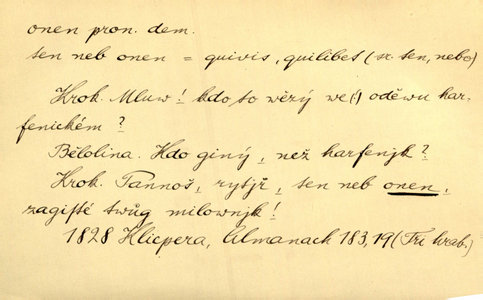 onen pron. dem.
ten neb onen = quivis, quilibet (sr. ten, nebo)
Krok. Mluw! kdo to wězý we(!) oděwu har-
fenickém?
Bělolina. Kdo giný, než harfenjk?
Krok. Pannoš, rytjř, ten neb onen,
zagisté twůg milownjk!
1828 Klicpera, Almanach 183,19 (Tři hrab.)